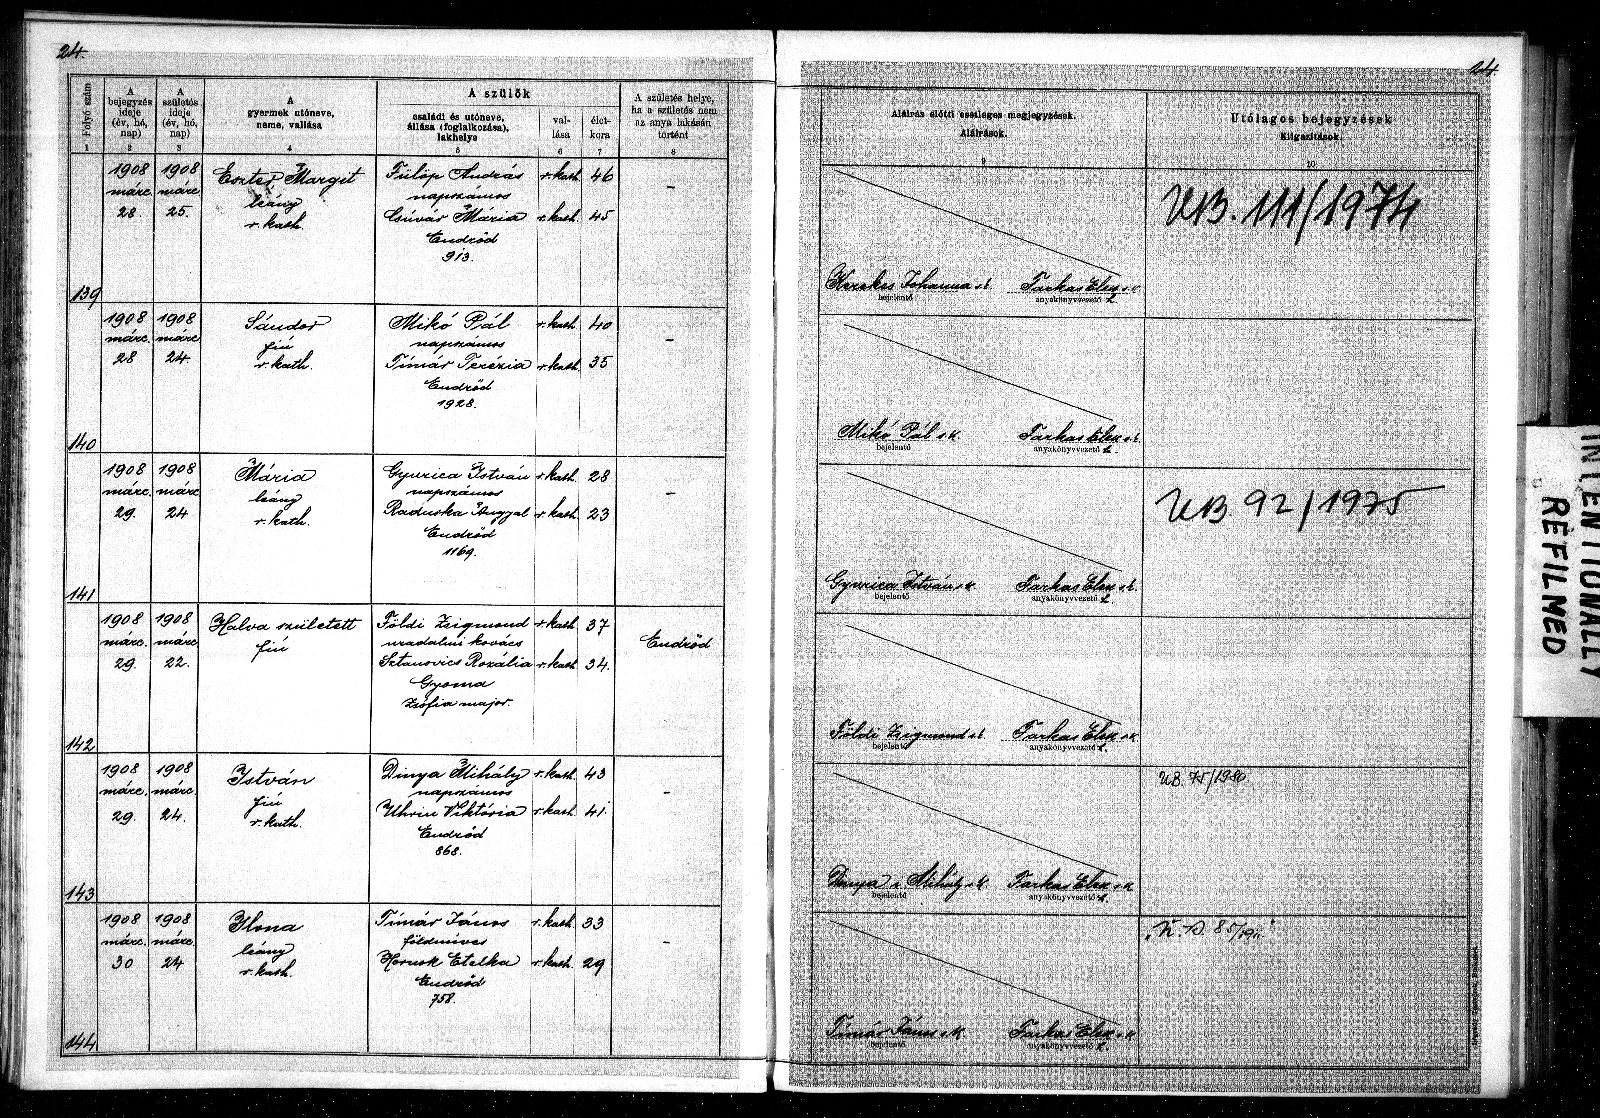 24.
Folyó szám
A bejegyzés ideje (év, hó, nap)
A születés ideje (év, hó, nap)
A gyermek utóneve, neme, vallása
A szülők
családi és utóneve, állása (foglalkozása), lakhelye
vallása
életkora
A születés helye, ha a születés nem az anya lakásán történt
1 2 3 4 5 6 7 8
139
1908 márc. 28.
1908 márc. 25.
Eszter Margit
leány
r. kath.
Fülöp András r. kath. 46
napszámos
Csúvár Mária r. kath. 45
Endrőd
913.
–
140
1908 márc. 28
1908 márc. 24.
Sándor
fiú
r. kath.
Mikó Pál r. kath. 40
napszámos
Tímár Terézia r. kath. 35
Endrőd
1928.
–
141
1908 márc. 29.
1908 márc. 24
Mária
leány
r. kath.
Gyurica István r. kath. 28
napszámos
Raduska Angyal r. kath. 23
Endrőd
1169.
–
142
1908 márc. 29.
1908 márc. 22.
Halva született
fiú
Földi Zsigmond r. kath. 37
uradalmi kovács
Sztanovics Rozália r. kath. 34.
Gyoma
Zsófia major.
Endrőd
143
1908 márc. 29.
1908 márc. 24.
István
fiú
r. kath.
Dinya Mihály r. kath. 43
napszámos
Uhrin Viktória r. kath. 41
Endrőd
868.
–
144
1908 márc. 30
1908 márc. 24
Ilona
leány
r. kath.
Tímár János r. kath. 33
földmíves
Hornok Etelka r. kath. 29
Endrőd
758.
–
24.
Aláírás előtti esetleges megjegyzések.
Aláírások.
Utólagos bejegyzések
Kiigazítások.
9 10
UB. 111/1974
Kerekes Johanna s.k. Farkas Elek s.k.
bejelentő anyakönyvvezető h.
Mikó Pál s.k. Farkas Elek s.k.
bejelentő anyakönyvvezető h.
UB 92/1975
Gyurica István s.k. Farkas Elek s.k.
bejelentő anyakönyvvezető h.
Földi Zsigmond s.k. Farkas Elek s.k.
bejelentő anyakönyvvezető h.
UB. 75/1980.
Dinya Mihály s.k. Farkas Elek s.k.
bejelentő anyakönyvvezető h.
85/
Tímár János s.k. Farkas Elek s.k.
bejelentő anyakönyvvezető h.
INTENTIONALLY
REFILMED